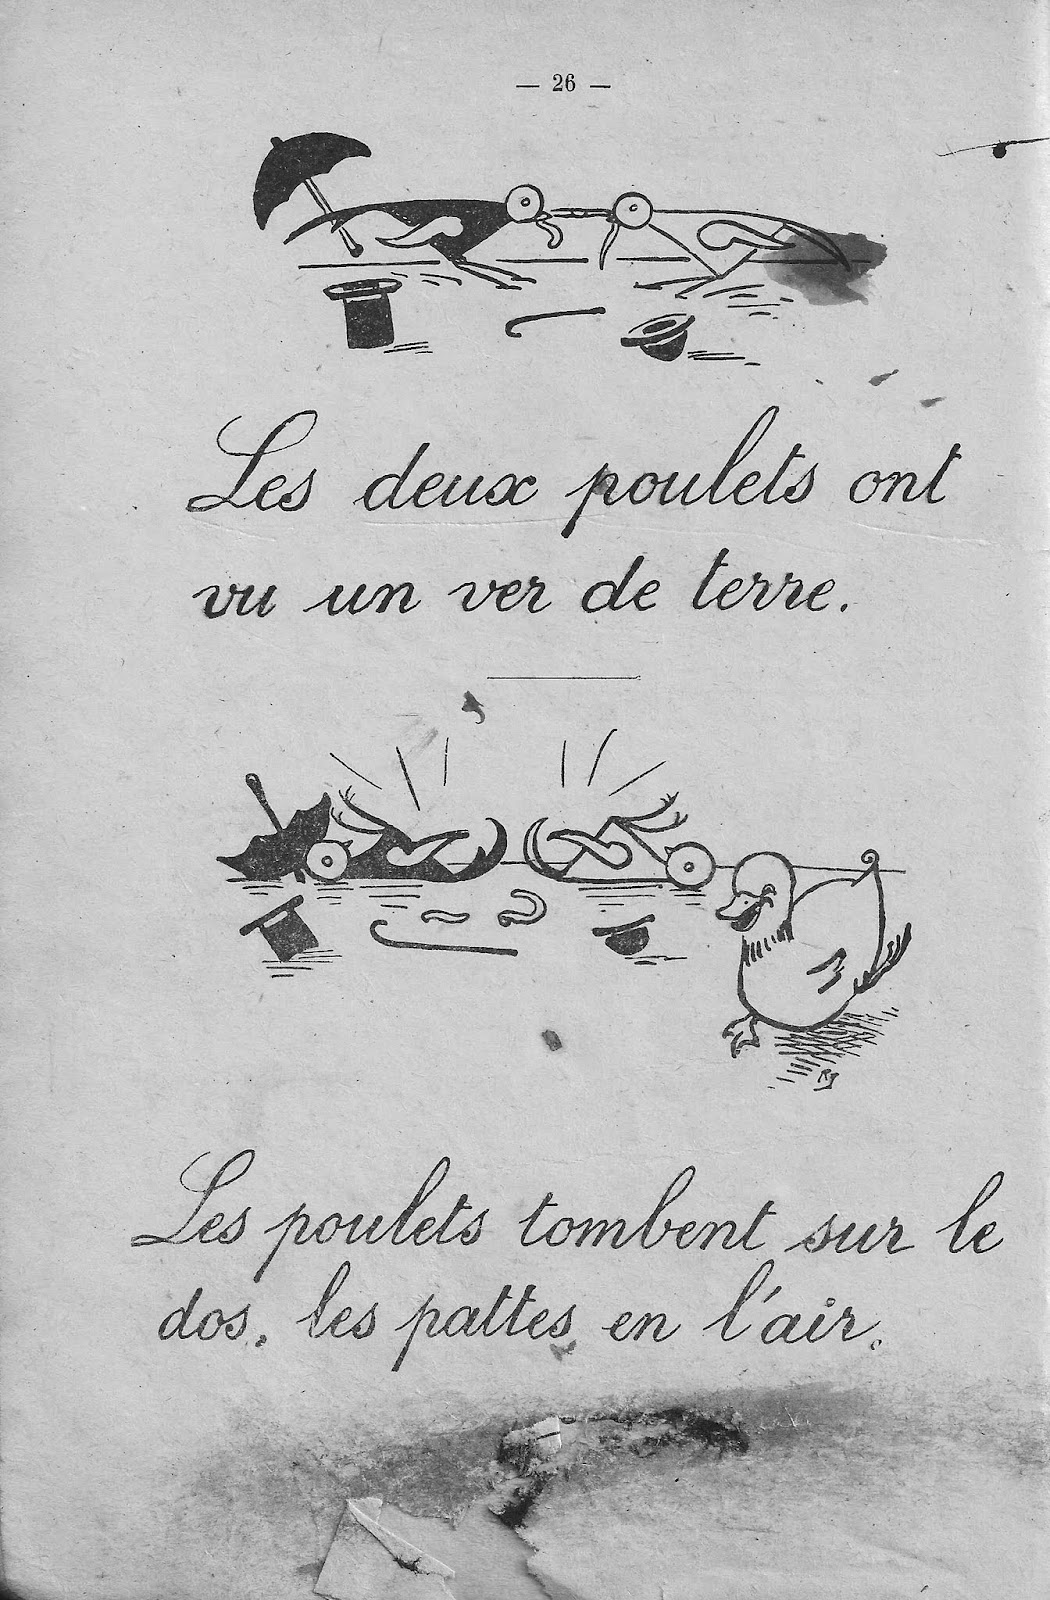 — 26 —
Les deux poulets ont
vu un ver de terre.
Les poulets tombent sur le
dos, les pattes en l'air.